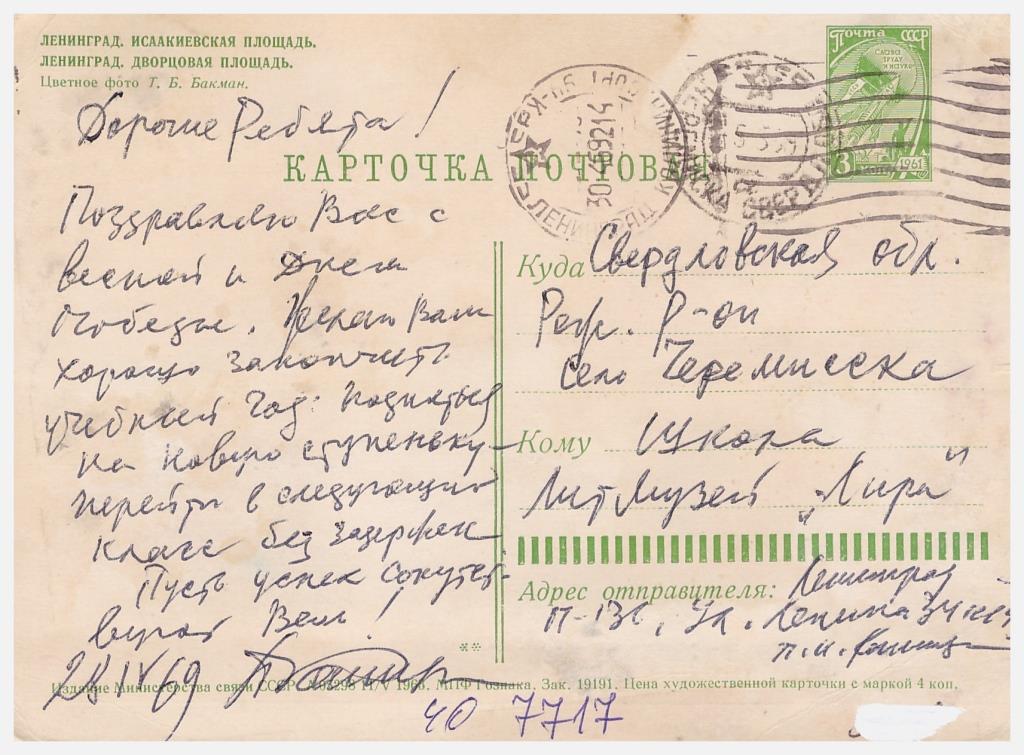 ЛЕНИНГРАД. ИСААКИЕВСКАЯ ПЛОЩАДЬ.
ЛЕНИНГРАД. ДВОРЦОВАЯ ПЛОЩАДЬ.
Цветное фото Т. Б. Бакман.
Дорогие Ребята!
КАРТОЧКА ПОЧТОВАЯ
Поздравляю Вас с
весной и Днем
Победы. Желаю Вам
хорошо закончить
учебный год: подняться
на новую ступеньку –
перейти в следующий
класс без задержек
Пусть успех сопутст-
вует Вам!
28 IV 69
Почта СССР
СЛАВА ТРУДУ И НАУКЕ
3 КОП
1961
ЛЕНИНГРАД
30-4-69 21 4
Куда Свердловская обл.
Реж. Р-он
Село Черемисска
Кому Школа
Лит Музей „Лира"
Адрес отправителя: Ленинград
П-136, Ул. Ленина 34
Издание Министерства связи СССР 14/V 1968. МПФ Гознака. Зак. 19191. Цена художественной карточки с маркой 4 коп.
ЧО 7717